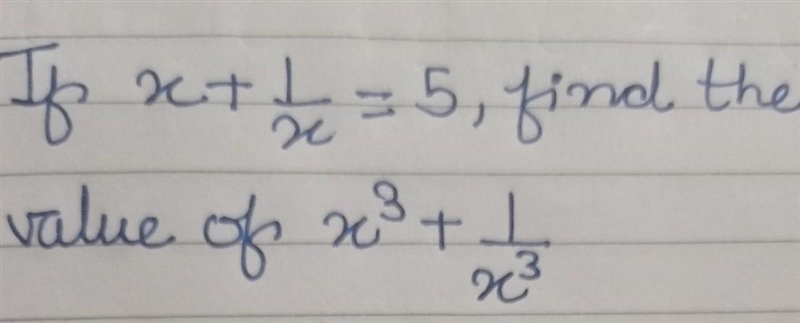 If x + 1/x = 5, find the
value of x³ + 1/x³